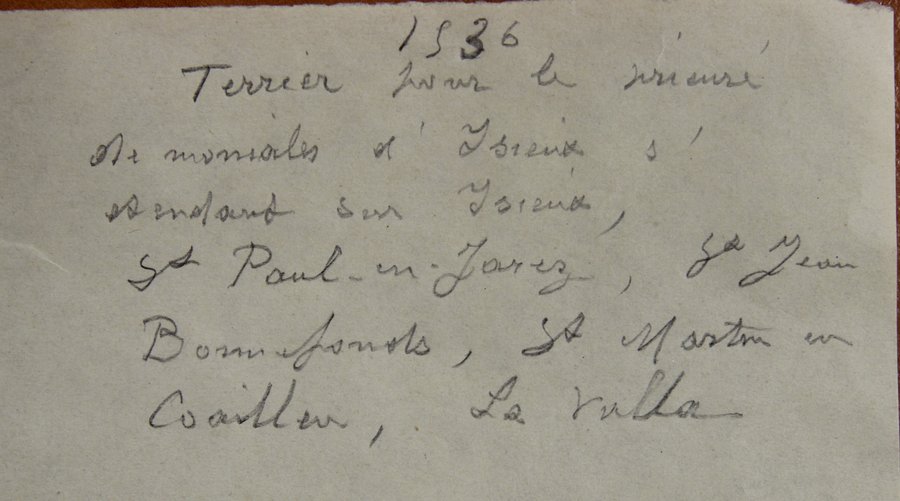 1536
Terrier pour le prieuré
de moniales d'Isieux s'
etendant sur Isieux,
St Paul-en-Jarez, St Jean
Bonnefonds, St Martin en
Coailleu, La Valla